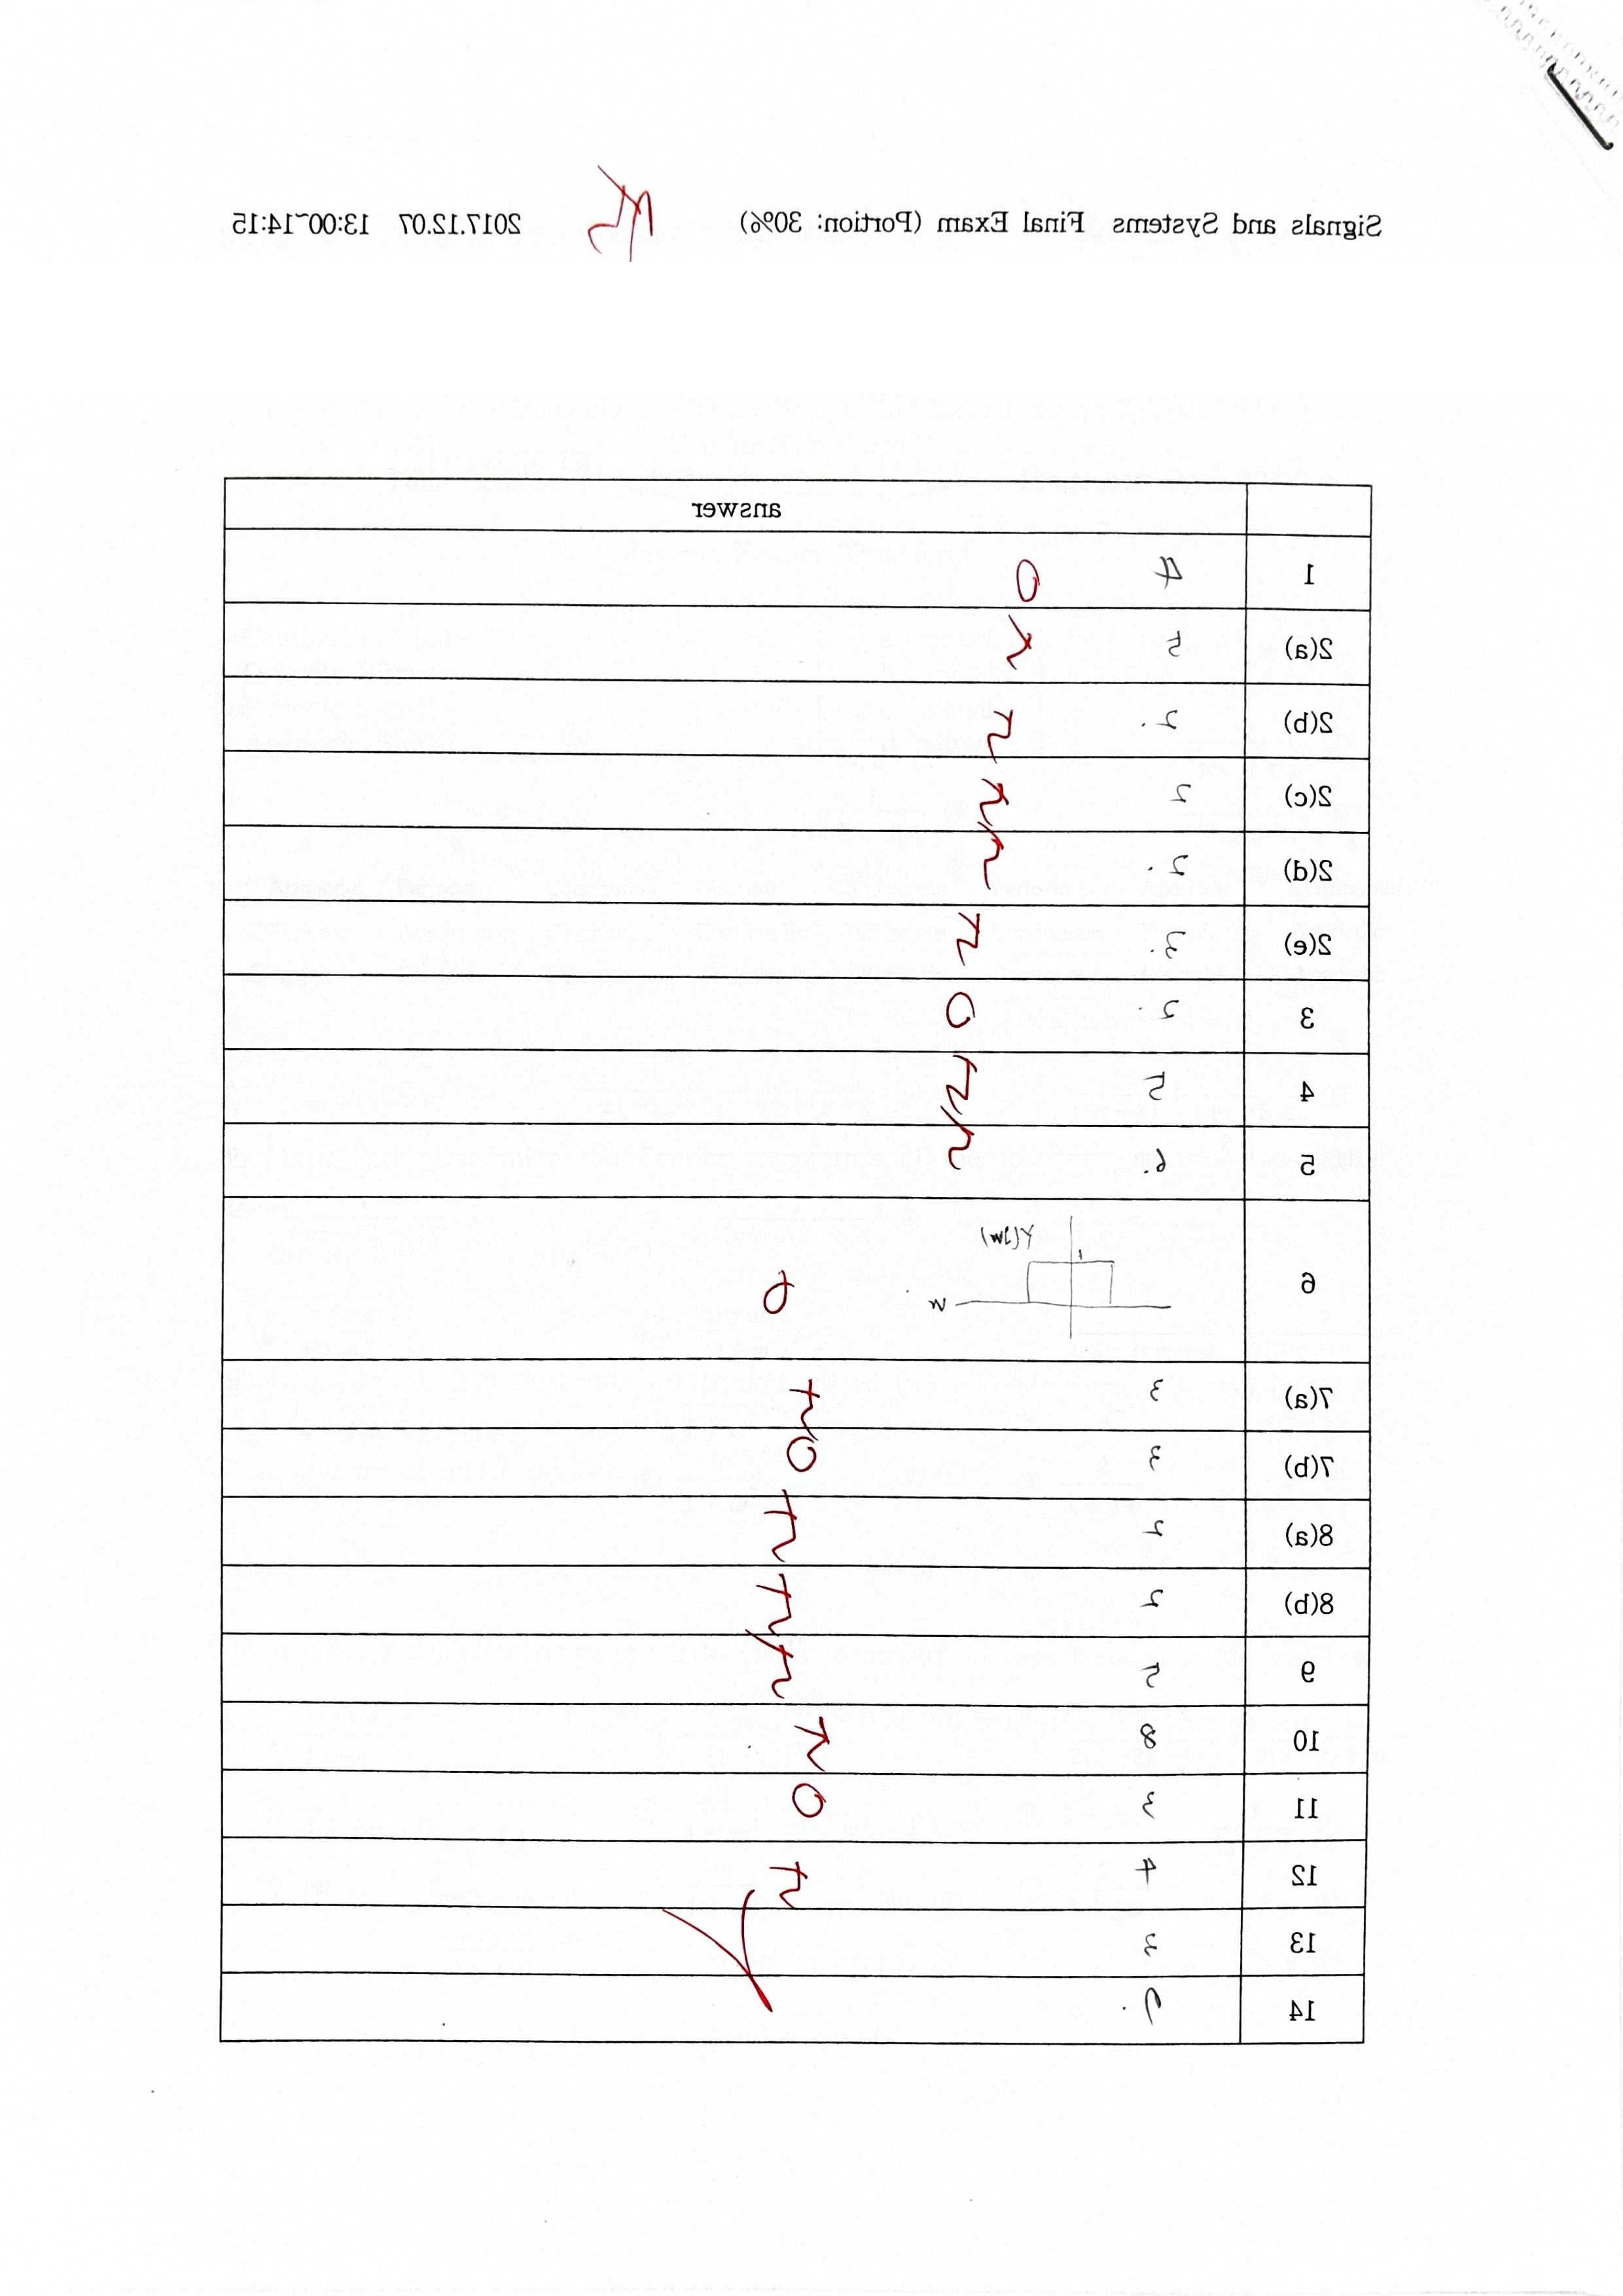 Signals and Systems Final Exam (Portion: 30%) 2017.12.07 13:00~14:15
answer
1 4 O
2(a) 5
2(b) 2.
2(c) 2
2(d) 2.
2(e) 3.
3 2. O
4 5
5 6.
6 Y(jw) 1 w O
7(a) 3
7(b) 3 O
8(a) 2
8(b) 2
9 5
10 8
11 3 O
12 4
13 3
14